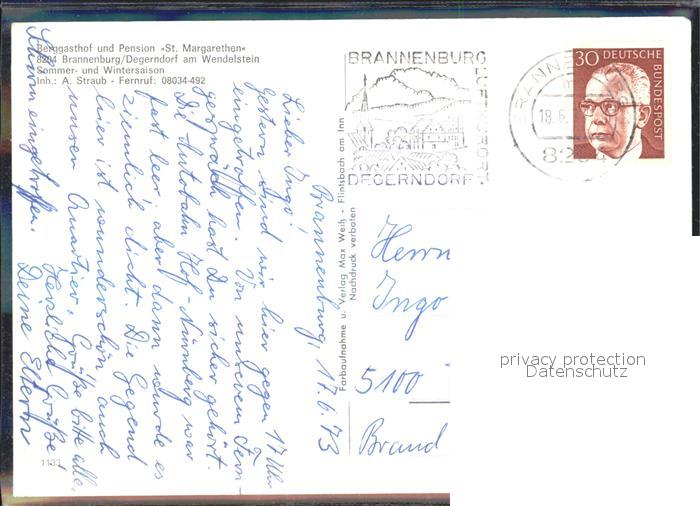 Berggasthof und Pension »St. Margarethen«
8204 Brannenburg/Degerndorf am Wendelstein
Sommer- und Wintersaison
Inh.: A. Straub - Fernruf: 08034-492
BRANNENBURG
LUFTKURORT
DEGERNDORF
18.6.
820
30 DEUTSCHE
BUNDESPOST
Farbaufnahme u. Verlag Max Weiß - Flintsbach am Inn
Nachdruck verboten
Brannenburg, 17.6.73
Lieber Ingo!
Gestern sind wir hier gegen 17 Uhr
eingetroffen. Von unserem Fern-
gespräch hast Du sicher gehört.
Die Autobahn Hof-Nürnberg war
fast leer, aber dann wurde es
ziemlich dicht. Die Gegend
hier ist wunderschön auch
unser Quartier. Grüße bitte alle.
Herzliche Grüße!
Deine Eltern
eingetroffen.
Herrn
Ingo
5100
Brand
1133
privacy protection
Datenschutz